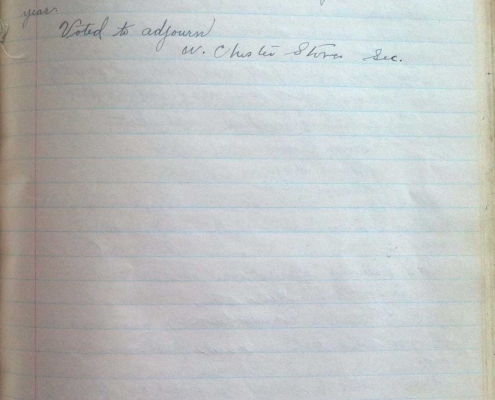 year.
Voted to adjourn
W. Chester Sec.